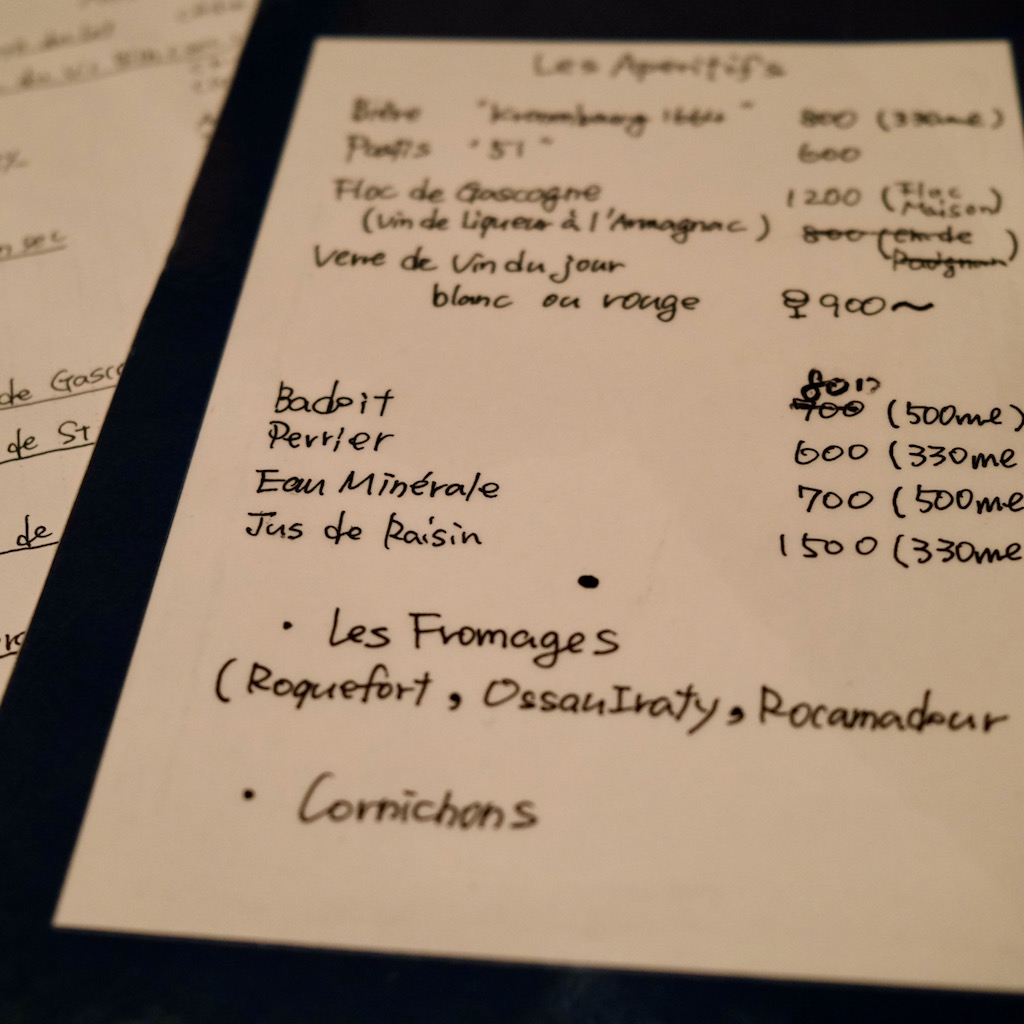 Les Aperitifs
Bière 800 (330ml)
Pastis "51" 600
Floc de Gascogne 1200 (Floc Maison)
(Vin de Liqueur à l'Armagnac) 800 (
Verre de Vin du jour
blanc ou rouge 900~
800
Badoit 700 (500ml)
Perrier 600 (330ml
Eau Minérale 700 (500ml
Jus de Raisin 1500 (330ml
• Les Fromages
(Roquefort, OssauIraty, Rocamadour
• Cornichons
n sec
de Gasco
de St
de